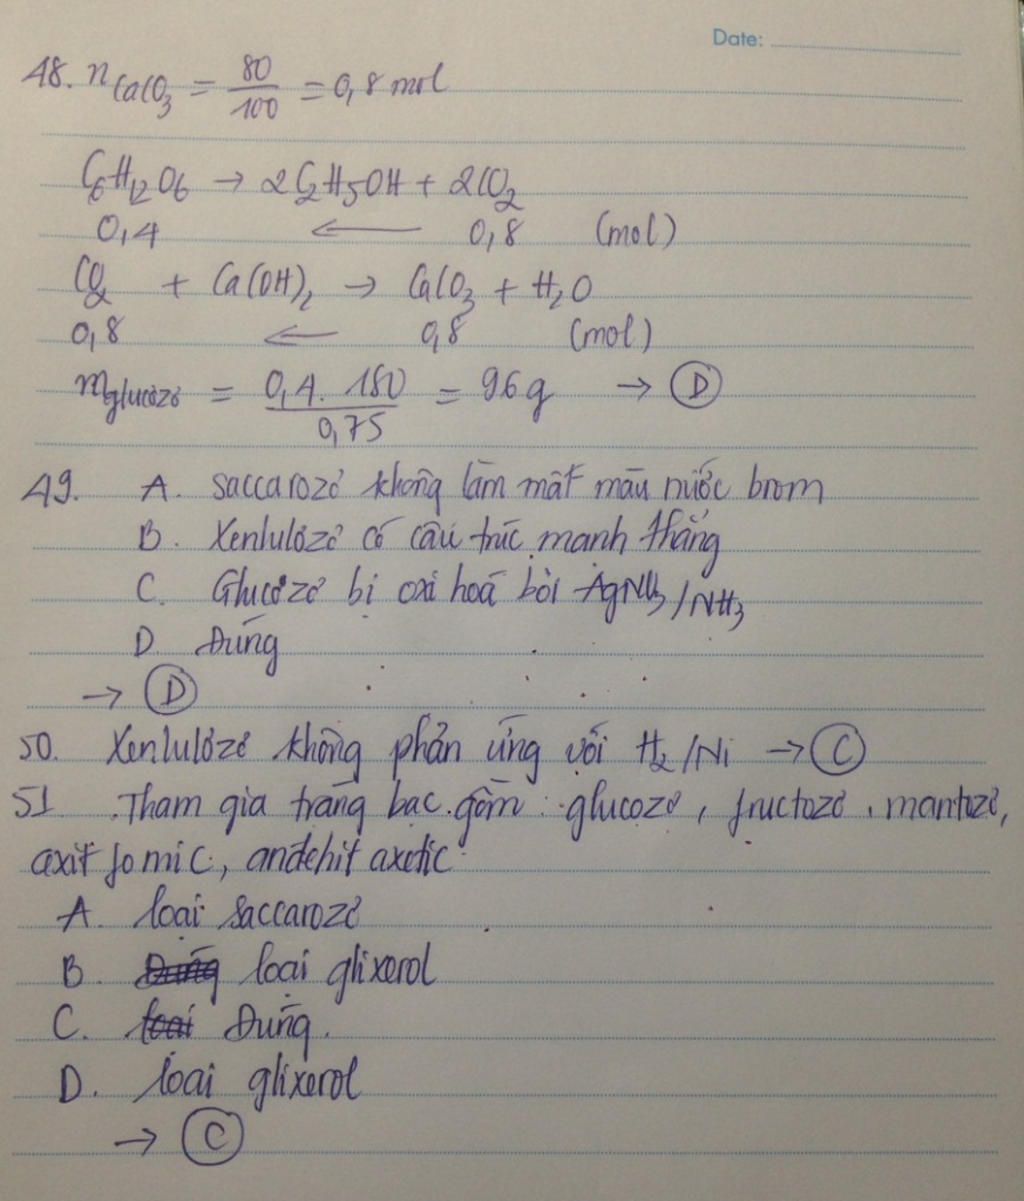 Date:
48. nCaCO3 = 80/100 = 0,8 mol
C6H12O6 → 2C2H5OH + 2CO2
0,4 ← 0,8 (mol)
CO2 + Ca(OH)2 → CaCO3 + H2O
0,8 ← 0,8 (mol)
mglucozơ = 0,4. 180/0,75 = 96g → D
49. A. saccarozơ không làm mất màu nước brom
B. Xenlulozơ có cấu trúc mạnh thẳng
C. Glucozơ bị oxi hoá bởi AgNO3/NH3
D. Đúng
→ D
50. Xenlulozơ không phản ứng với H2/Ni → C
51. Tham gia tráng bạc gồm : glucozơ, fructozơ, mantozơ,
axit fomic, andehit axetic
A. loại saccarozơ
B. Đúng loại glixerol
C. loại Đúng.
D. loại glixerol
→ C